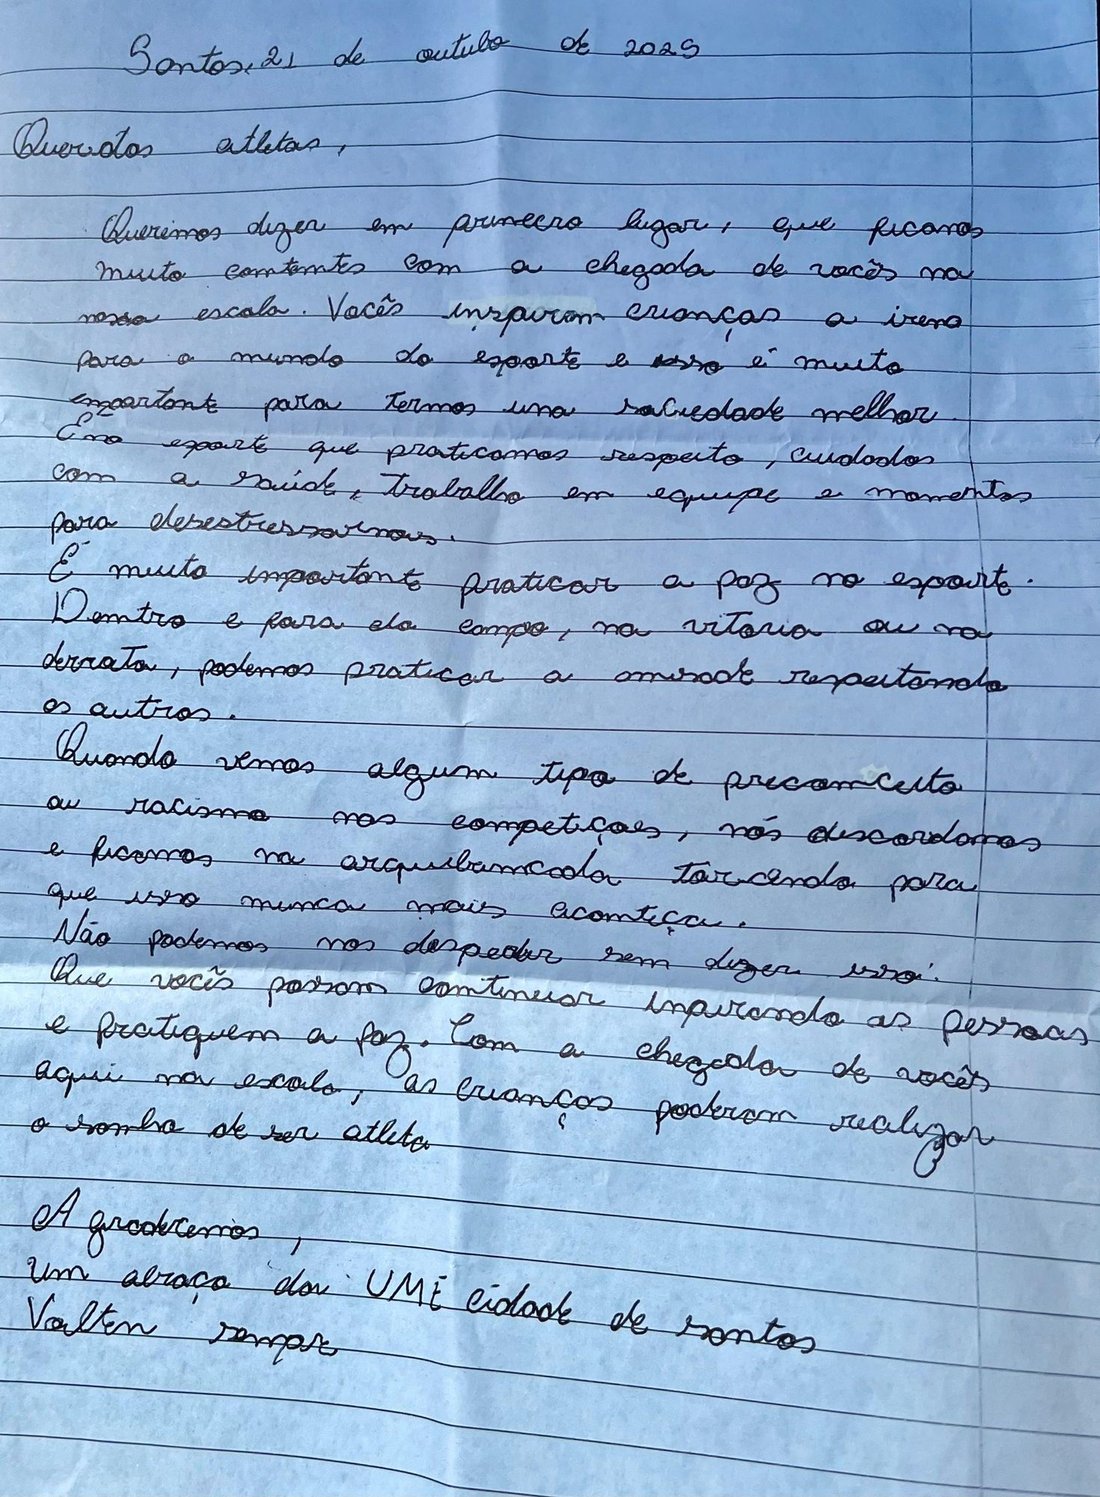 Santos, 21 de outubo de 2025
Queridos atletas,
Queremos dizer em primeiro lugar, que ficamos
muito contentes com a chegada de vocês na
nossa escola. Vocês inspiram crianças a irem
para o mundo do esporte e isso é muito
importante para termos uma sociedade melhor.
É no esporte que praticamos respeito, cuidados
com a saúde, trabalho em equipe e momentos
para desestressarmos.
É muito importante praticar a paz no esporte.
Dentro e fora do campo, na vitoria ou na
derrota, podemos praticar a amizade respeitando
os outros.
Quando vemos algum tipo de preconceito
ou racismo nas competiçoes, nós discordamos
e ficamos na arquibancada torcendo para
que isso nunca mais aconteça.
Não podemos nos despedir sem dizer isso:
Que vocês possam continuar inpirando as pessoas
e pratiquem a paz. Com a chegada de vocês
aqui na escola, as crianças poderam realizar
o sonho de ser atleta
Agradecemos,
um abraço da UME cidade de santos
Voltem sempre